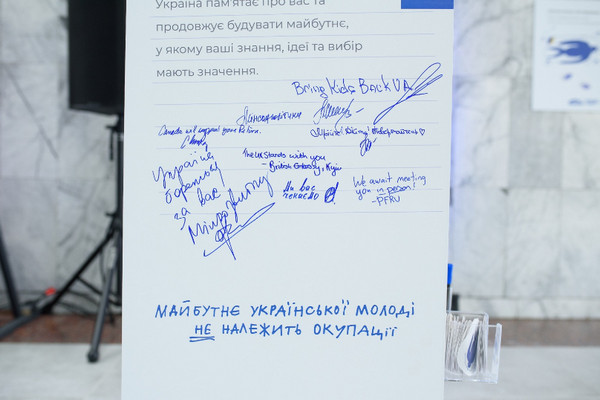 Україна пам'ятає про вас та
продовжує будувати майбутнє,
у якому ваші знання, ідеї та вибір
мають значення.
Bring Kids Back UA
Canada will support your Return.
The UK Stands with you
- British Embassy, Kyiv
Україна
бореться
за
вас
Мінрозвитку
Ми вас
чекаємо
We await meeting
you in person!
-PFRU
МАЙБУТНЄ УКРАЇНСЬКОЇ МОЛОДІ
НЕ НАЛЕЖИТЬ ОКУПАЦІЇ